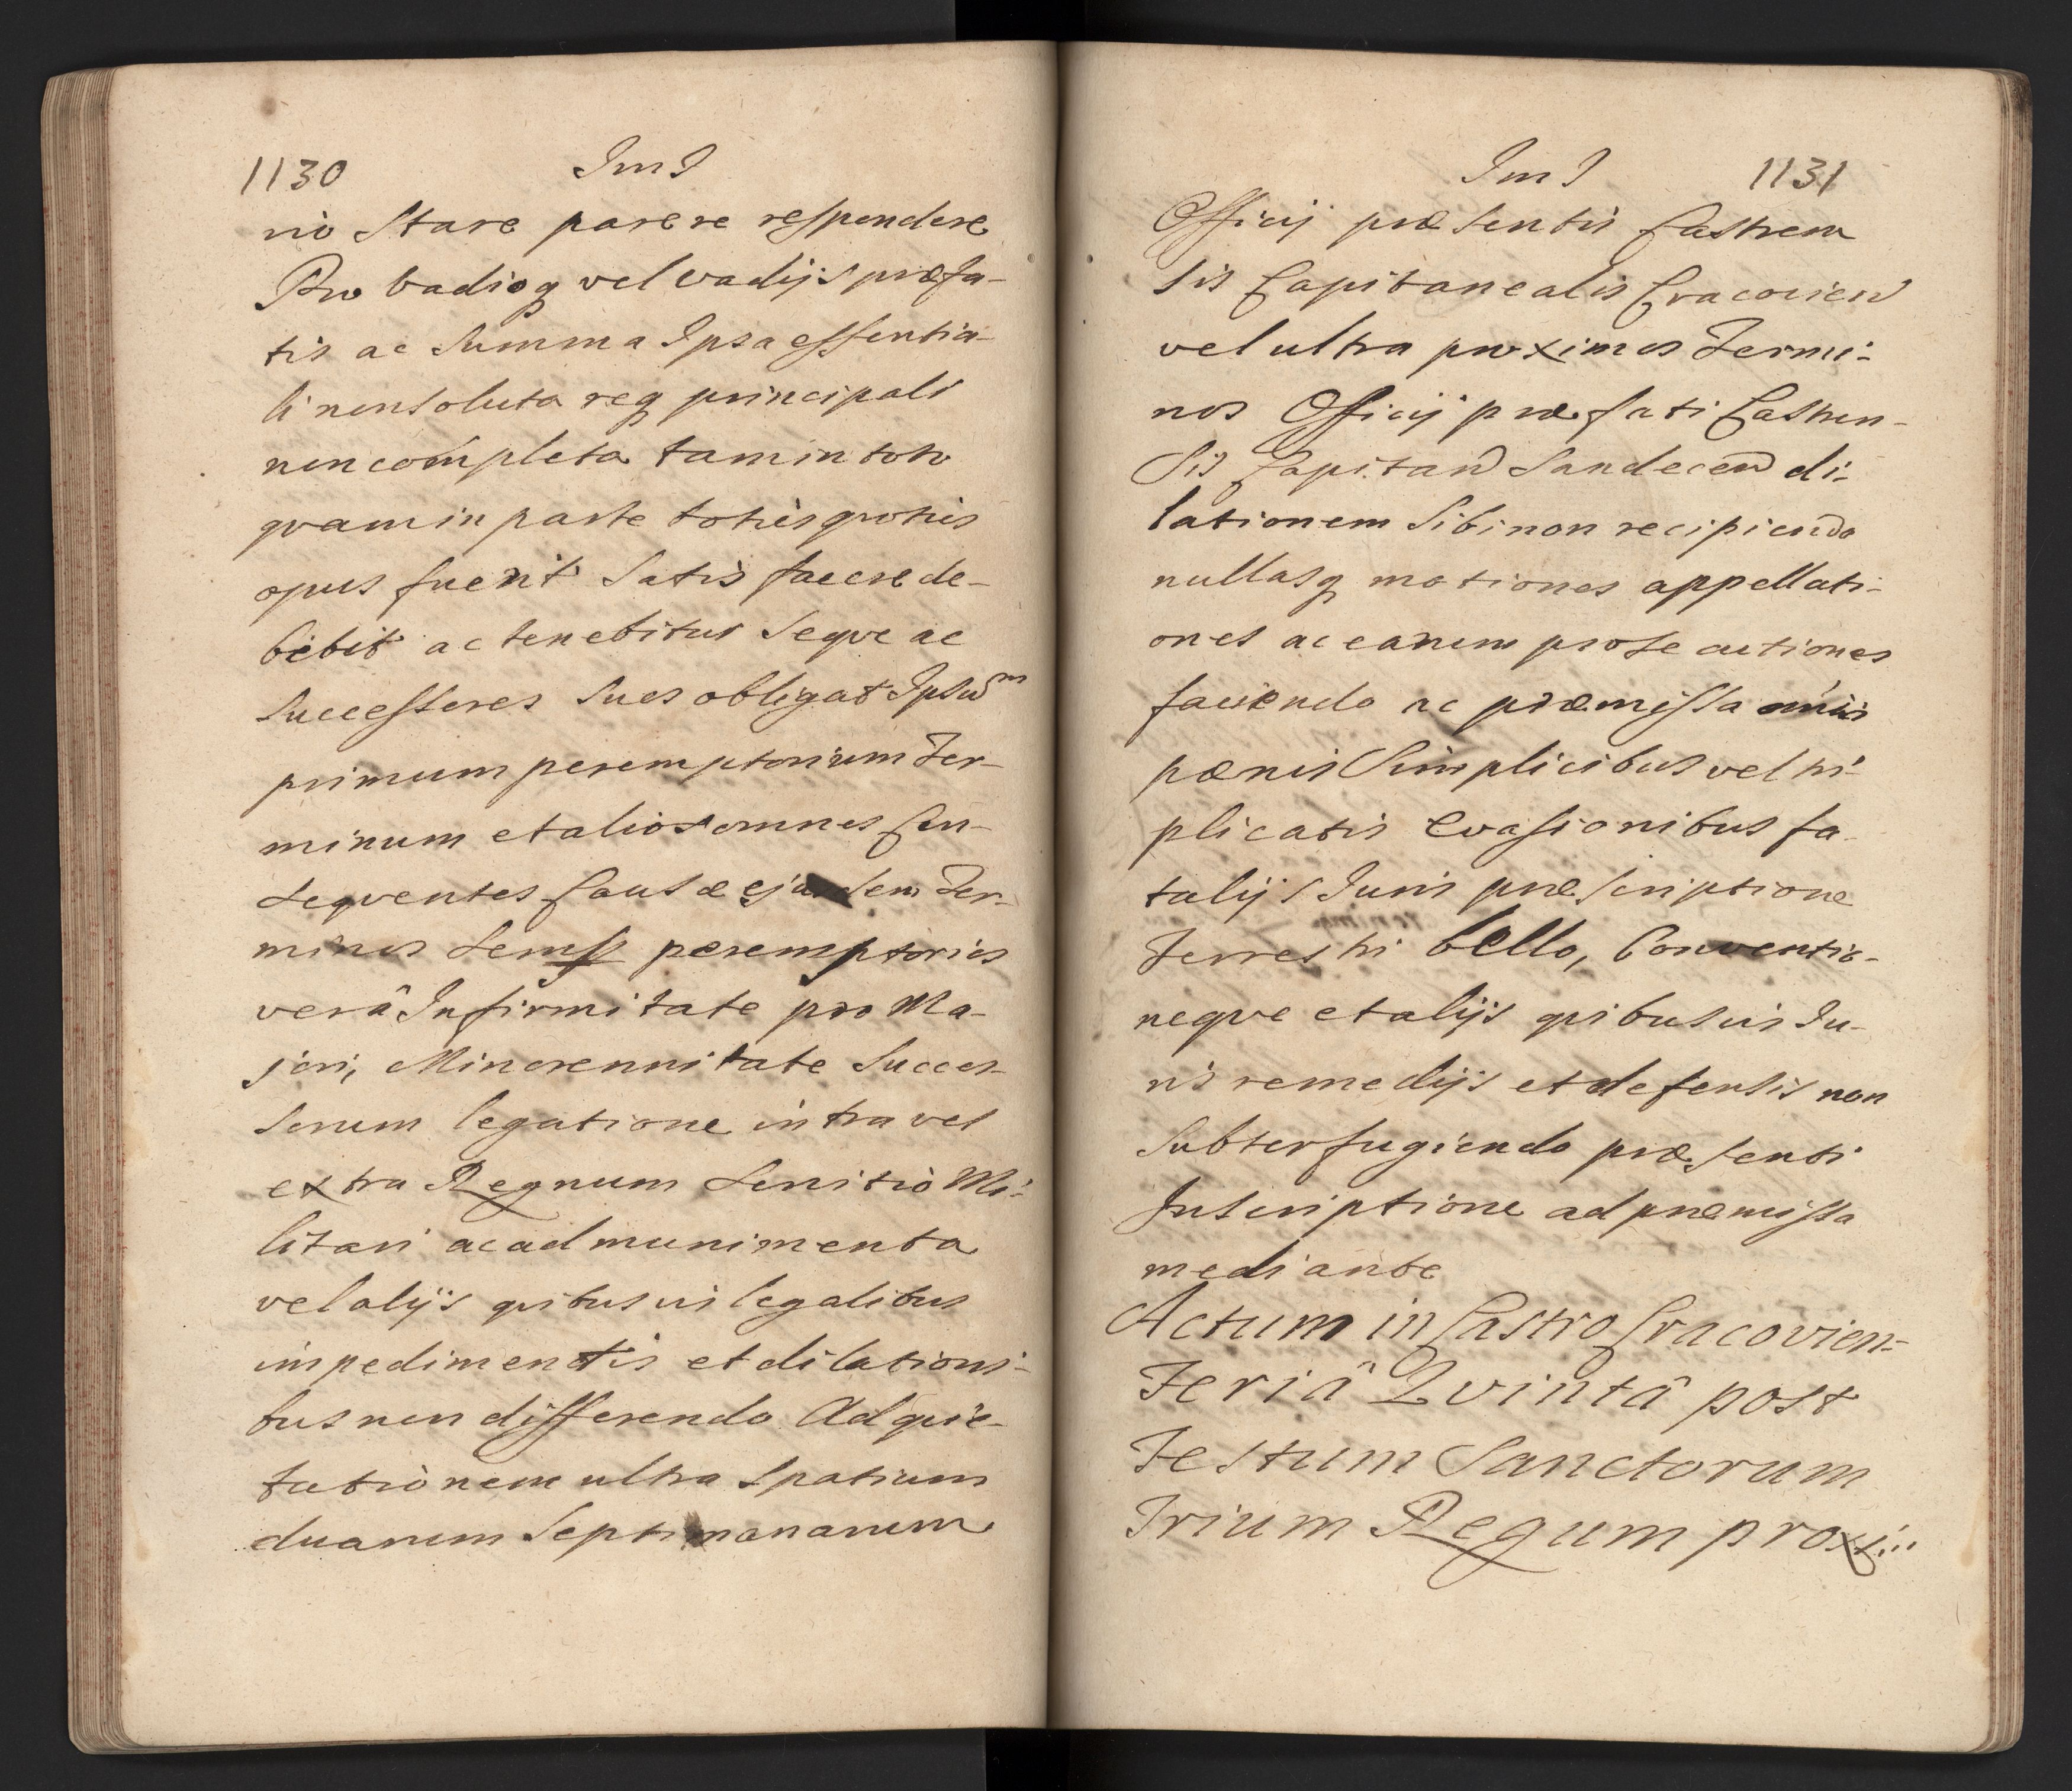 1130 ImJ
rio Stare parere respondere
Pro vadioq vel vadijs præfa-
tis ac Summa Ipsa essentia-
li nonsoluta req principali
non completa tam in toto
qvam in parte toties qvoties
opus fuerit Satis facere de-
bebit ac tenebitur Seqve ac
Successores Suos obligat Ipsum
primum peremptorium Ter-
minum et alios omnes Con-
seqventes Causæ ejusdem Ter-
minos semp peremptorios
verâ Infirmitate pro Ma-
jori, Minorennitate Succes-
sorum legatione intra vel
extra Regnum Servitio Mi-
litari ac ad munimenta
vel alijs qvibusvis legalibus
impedimentis et dilationi-
bus non differendo Ad qvie-
tationem ultra Spatium
duarum Septimanarum
ImJ 1131
Officij præsentis Castren
sis Capitanealis Cracovien
vel ultra proximos Termi-
nos Officij præfati Castren-
sis Capitan Sandecen di-
lationem Sibi non recipiendo
nullasq motiones appellati-
ones ac earum prosecutiones
faciendo ac præmissa omnia
pœnis Simplicibus vel tri-
plicatis Evasionibus fa-
talijs Juris præscriptione
Terrestri bello, Conventio-
neqve et alijs qvibusvis Ju-
ris remedijs et defensis non
Subterfugiendo præsenti
Inscriptione ad præmissa
mediante
Actum in Castro Cracovien-
Feriâ Qvintâ post
Festum Sanctorum
Trium Regum proxi